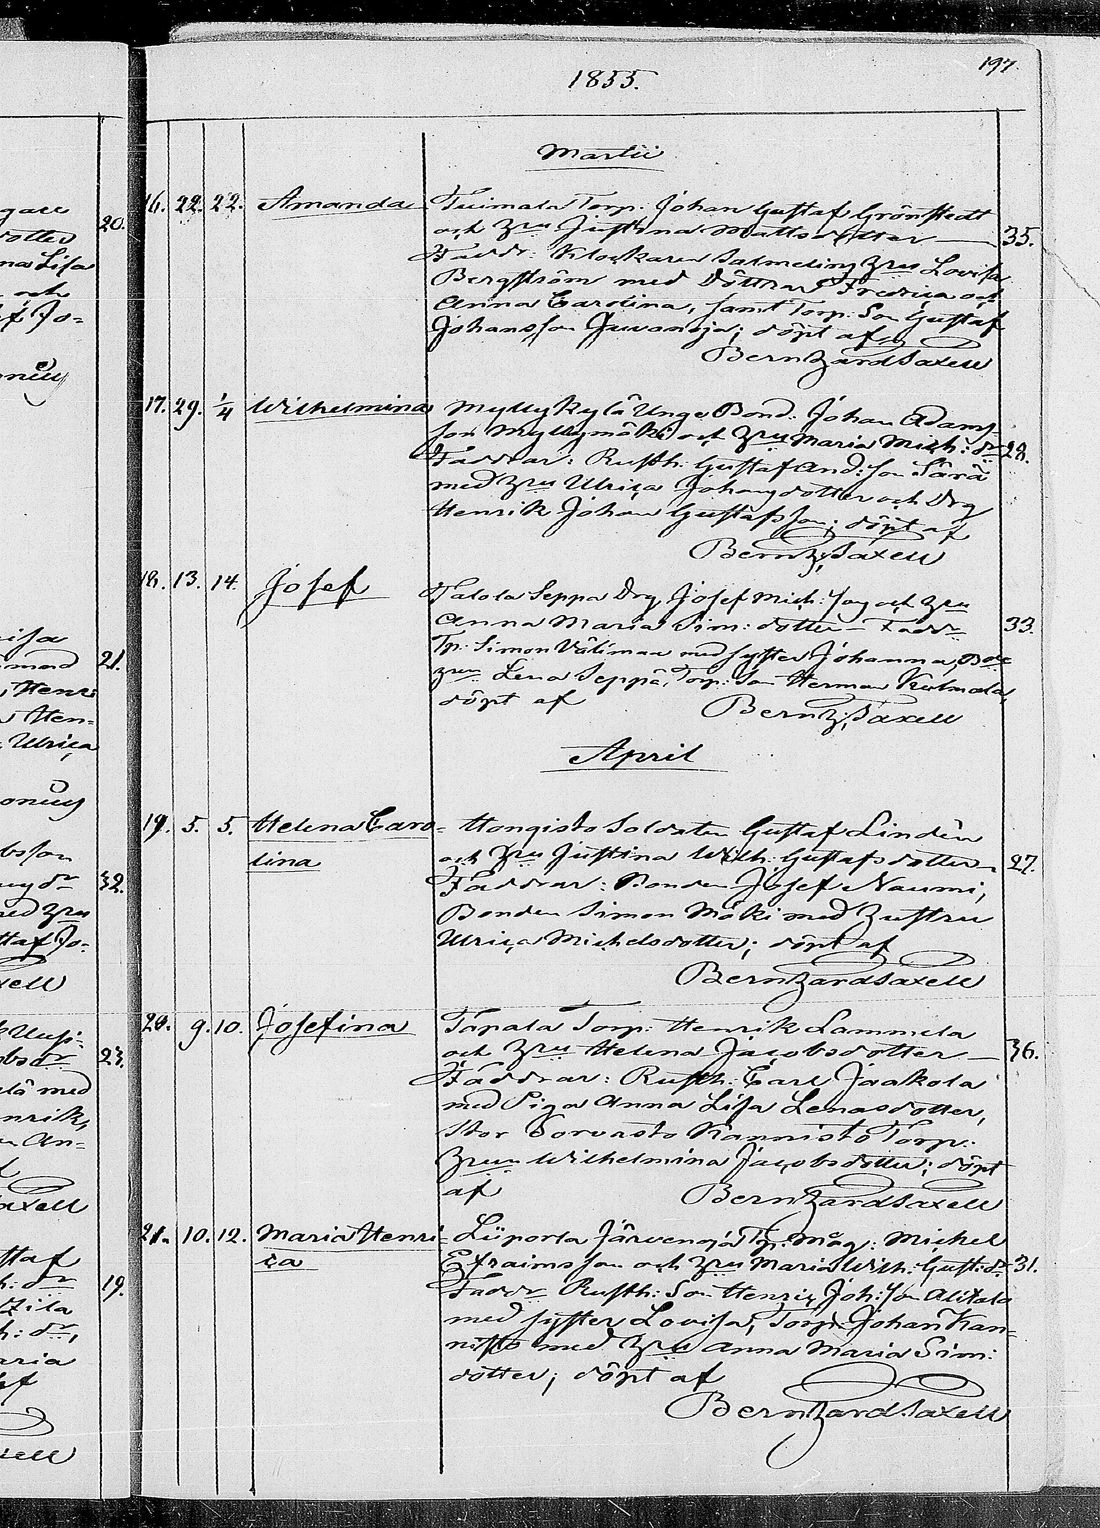 197
1855.
Martii
16. 22. 22. Amanda Tuimala Torp. Johan Gustaf Grönstedt
och Hru Justina Mattsdotter — 35.
Faddr: Klockaren Salmelin, Hru Lovisa
Bergström med Döttrar Fredrica och
Anna Carolina, samt Torp. Son Gustaf
Johansson Juvanoja; döpt af
Bernhard Saxell
17. 29. 1/4 Wilhelmina Myllykylä Unge Bond. Johan Adams-
son Myllymäki och Hru Maria Mich: dr 28.
Faddrar: Rusth: Gustaf And: son Särä
med Hru Ulrica Johansdotter och Drg
Henrik Johan Gustafsson; döpt af
Bernh. Saxell
18. 13. 14. Josef Talola Seppä Drg Josef Mich: son och Hru
Anna Maria Sim: dotter — Faddr 33.
Tp. Simon Välimaa med syster Johanna,
Hru Lena Seppä, Torp: Son Herman Kulmala,
döpt af Bernh. Saxell
April
19. 5. 5. Helena Caro- Hongisto Soldaten Gustaf Lindén
lina och Hru Justina Wilh. Gustafsdotter 27.
Faddrar: Bonden Josef Naumi,
Bonden Simon Mäki med Hustru
Ulrica Michelsdotter; döpt af
Bernhard Saxell
20. 9. 10. Josefina Tapala Torp: Henrik Lammela
och Hru Helena Jacobsdotter — 36.
Faddrar: Rusth: Carl Jaakola
med Piga Anna Lisa Lenasdotter,
Stor Sorvasto Kannisto Torp:
Hrun Wilhelmina Jacobsdotter; döpt
af Bernhard Saxell
21. 10. 12. Maria Henri- Liiporla Järvenojä Tp. Måg: Michel
ca Efraimsson och Hru Maria Wilh: Gust: dr 31.
Faddr Rusth: Son Henric Joh: son Alitalo
med syster Lovisa, Torp: Johan Kan-
nisto med Hru Anna Maria Sim:
dotter; döpt af
Bernhard Saxell